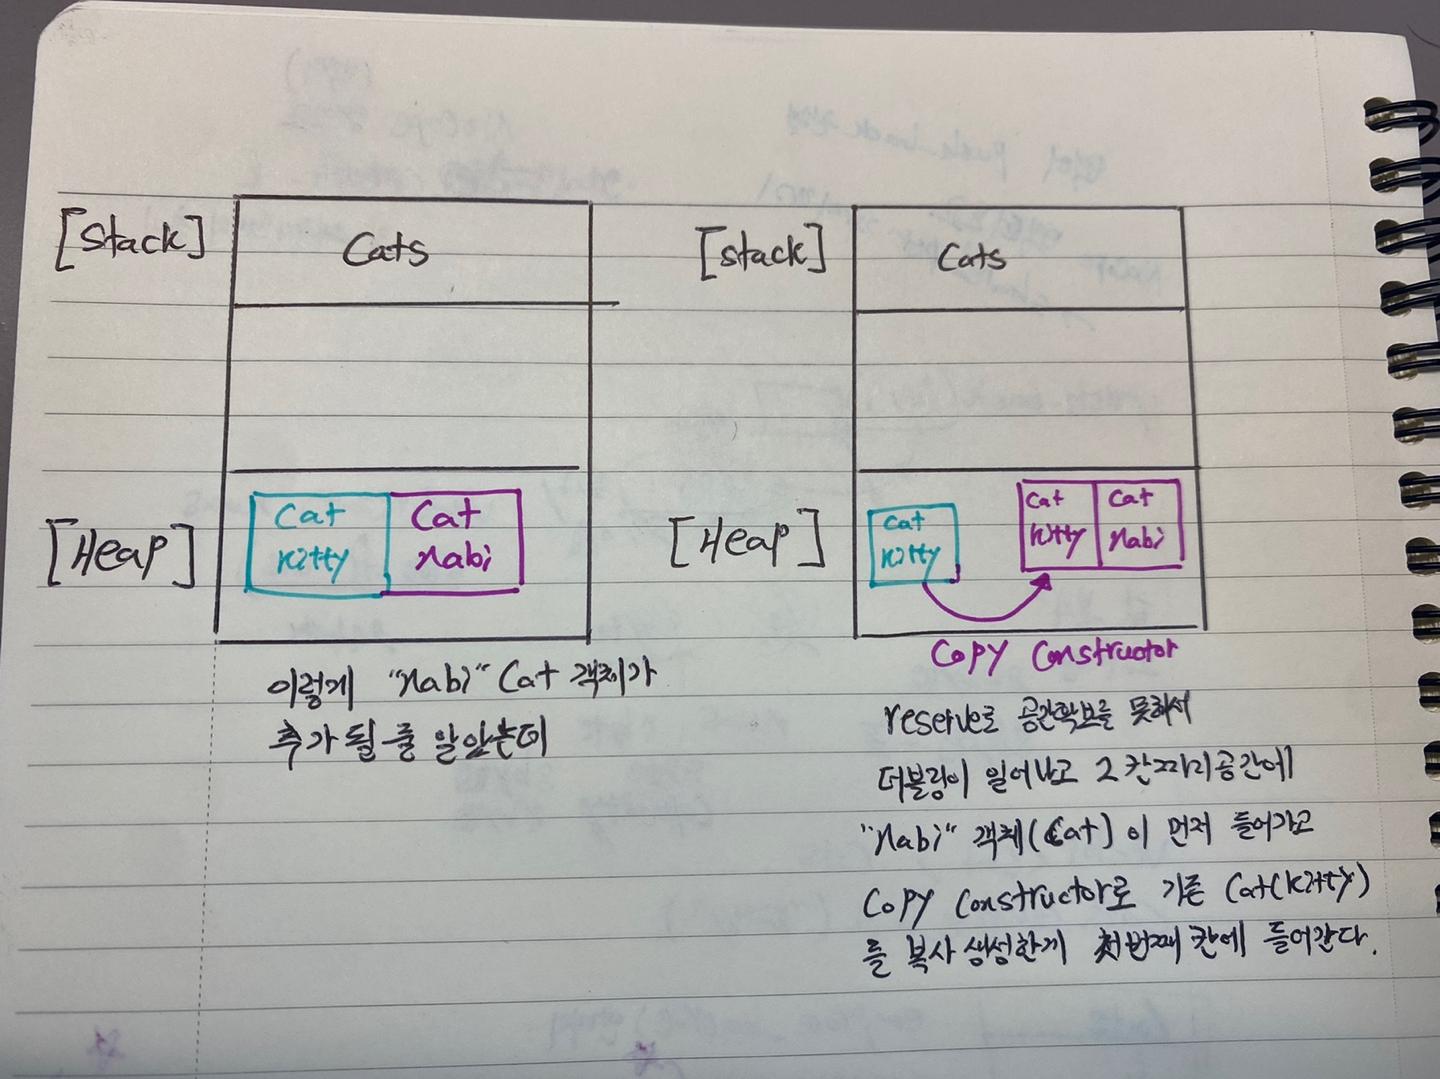 [Stack]
Cats
[Heap]
Cat
Kitty
Cat
Nabi
이렇게 "Nabi" Cat 객체가
추가 될 줄 알았는데
[Stack]
Cats
[Heap]
Cat
Kitty
Cat
Kitty
Cat
Nabi
Copy Constructor
reserve로 공간확보를 못해서
더블링이 일어나고 2칸짜리 공간에
"Nabi" 객체(Cat)이 먼저 들어가고
Copy Constructor로 기존 Cat(Kitty)
를 복사 생성한게 첫번째 칸에 들어간다.